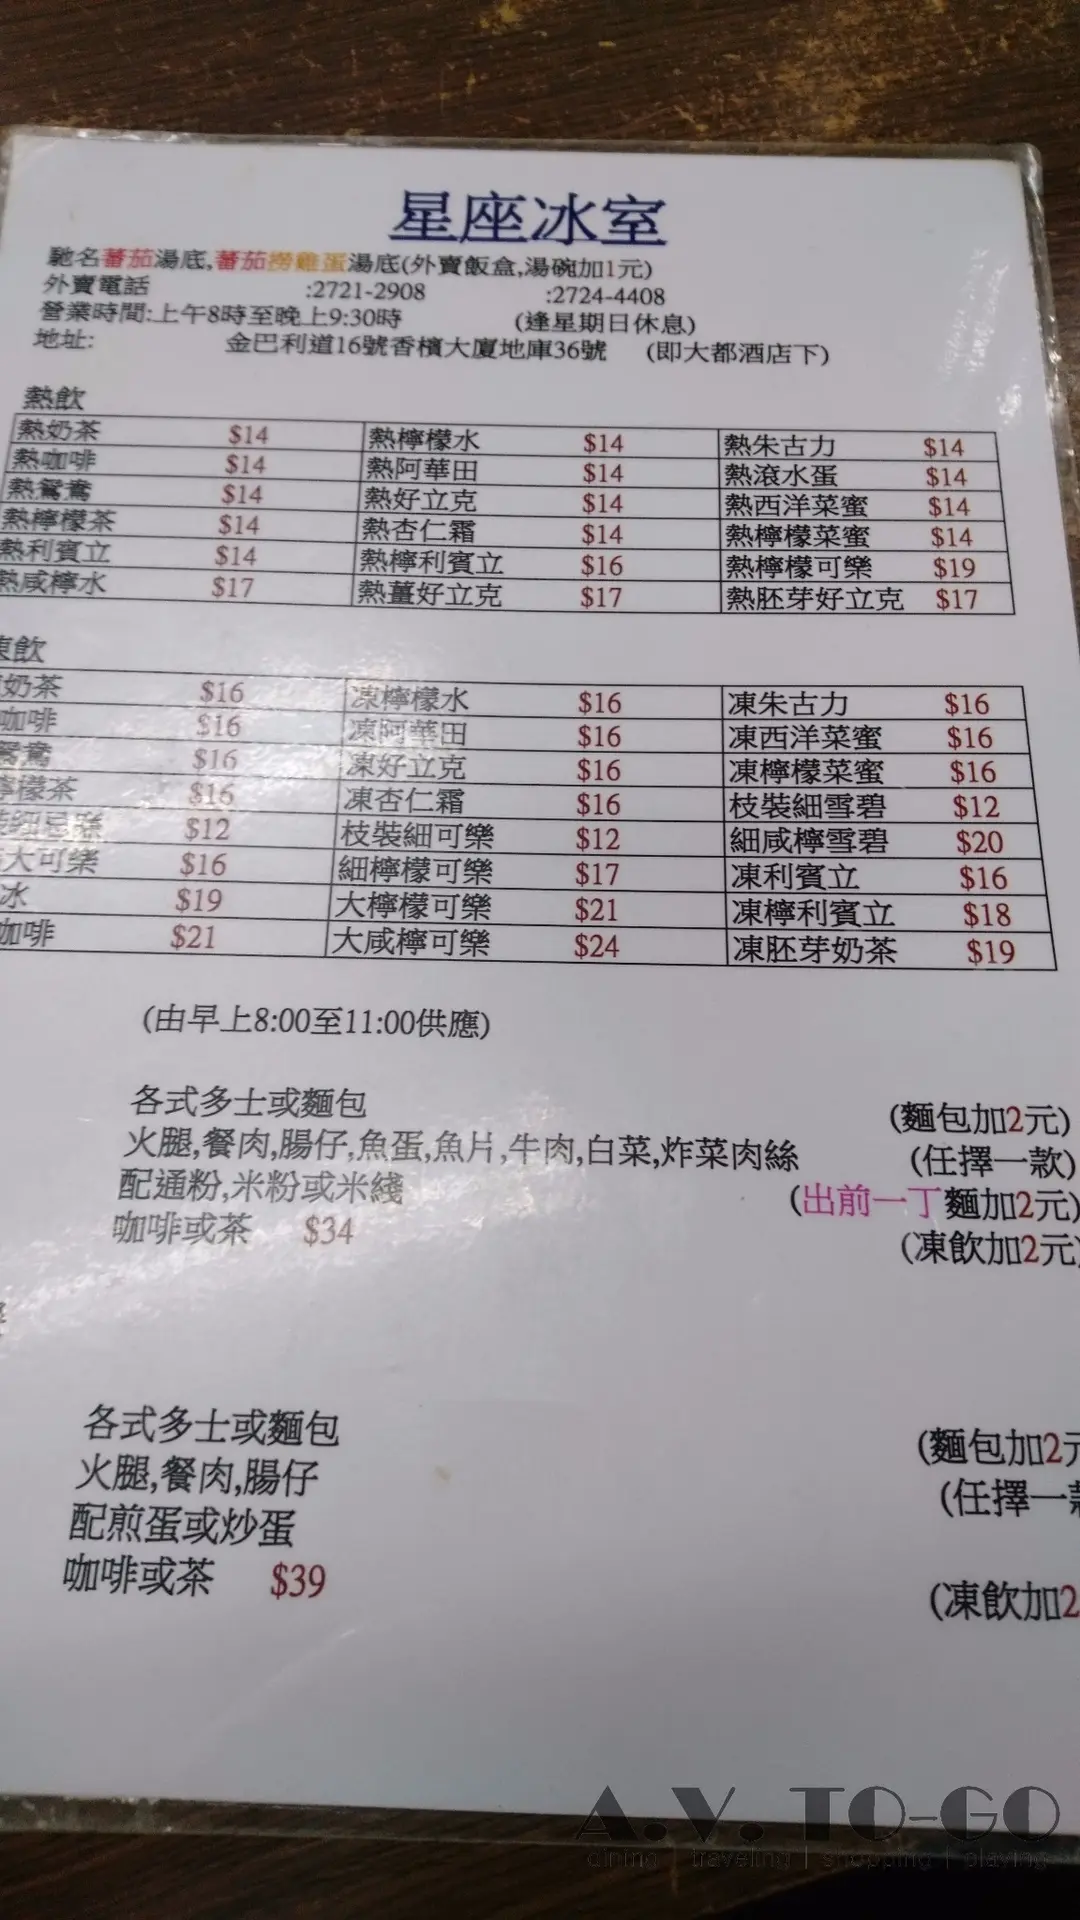 星座冰室
馳名蕃茄湯底,蕃茄撈雞蛋湯底(外賣飯盒,湯碗加1元)
外賣電話 :2721-2908 :2724-4408
營業時間:上午8時至晚上9:30時 (逢星期日休息)
地址: 金巴利道16號香檳大廈地庫36號 (即大都酒店下)
熱飲
熱奶茶 $14 熱檸檬水 $14 熱朱古力 $14
熱咖啡 $14 熱阿華田 $14 熱滾水蛋 $14
熱鴛鴦 $14 熱好立克 $14 熱西洋菜蜜 $14
熱檸檬茶 $14 熱杏仁霜 $14 熱檸檬菜蜜 $14
熱利賓立 $14 熱檸利賓立 $16 熱檸檬可樂 $19
熱咸檸水 $17 熱薑好立克 $17 熱胚芽好立克 $17
凍飲
奶茶 $16 凍檸檬水 $16 凍朱古力 $16
咖啡 $16 凍阿華田 $16 凍西洋菜蜜 $16
鴛鴦 $16 凍好立克 $16 凍檸檬菜蜜 $16
檸檬茶 $16 凍杏仁霜 $16 枝裝細雪碧 $12
$12 枝裝細可樂 $12 細咸檸雪碧 $20
大可樂 $16 細檸檬可樂 $17 凍利賓立 $16
冰 $19 大檸檬可樂 $21 凍檸利賓立 $18
咖啡 $21 大咸檸可樂 $24 凍胚芽奶茶 $19
(由早上8:00至11:00供應)
各式多士或麵包 (麵包加2元)
火腿,餐肉,腸仔,魚蛋,魚片,牛肉,白菜,炸菜肉絲 (任擇一款)
配通粉,米粉或米綫 (出前一丁麵加2元)
咖啡或茶 $34 (凍飲加2元)
各式多士或麵包 (麵包加2元
火腿,餐肉,腸仔 (任擇一款
配煎蛋或炒蛋
咖啡或茶 $39 (凍飲加2
A.V. TO-GO
dining | traveling | shopping | playing